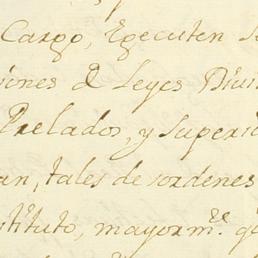 Cargo, Executen
siones d Leyes Divi
Prelados, y Superi
an, tales desordenes
stituto, mayorm.te q